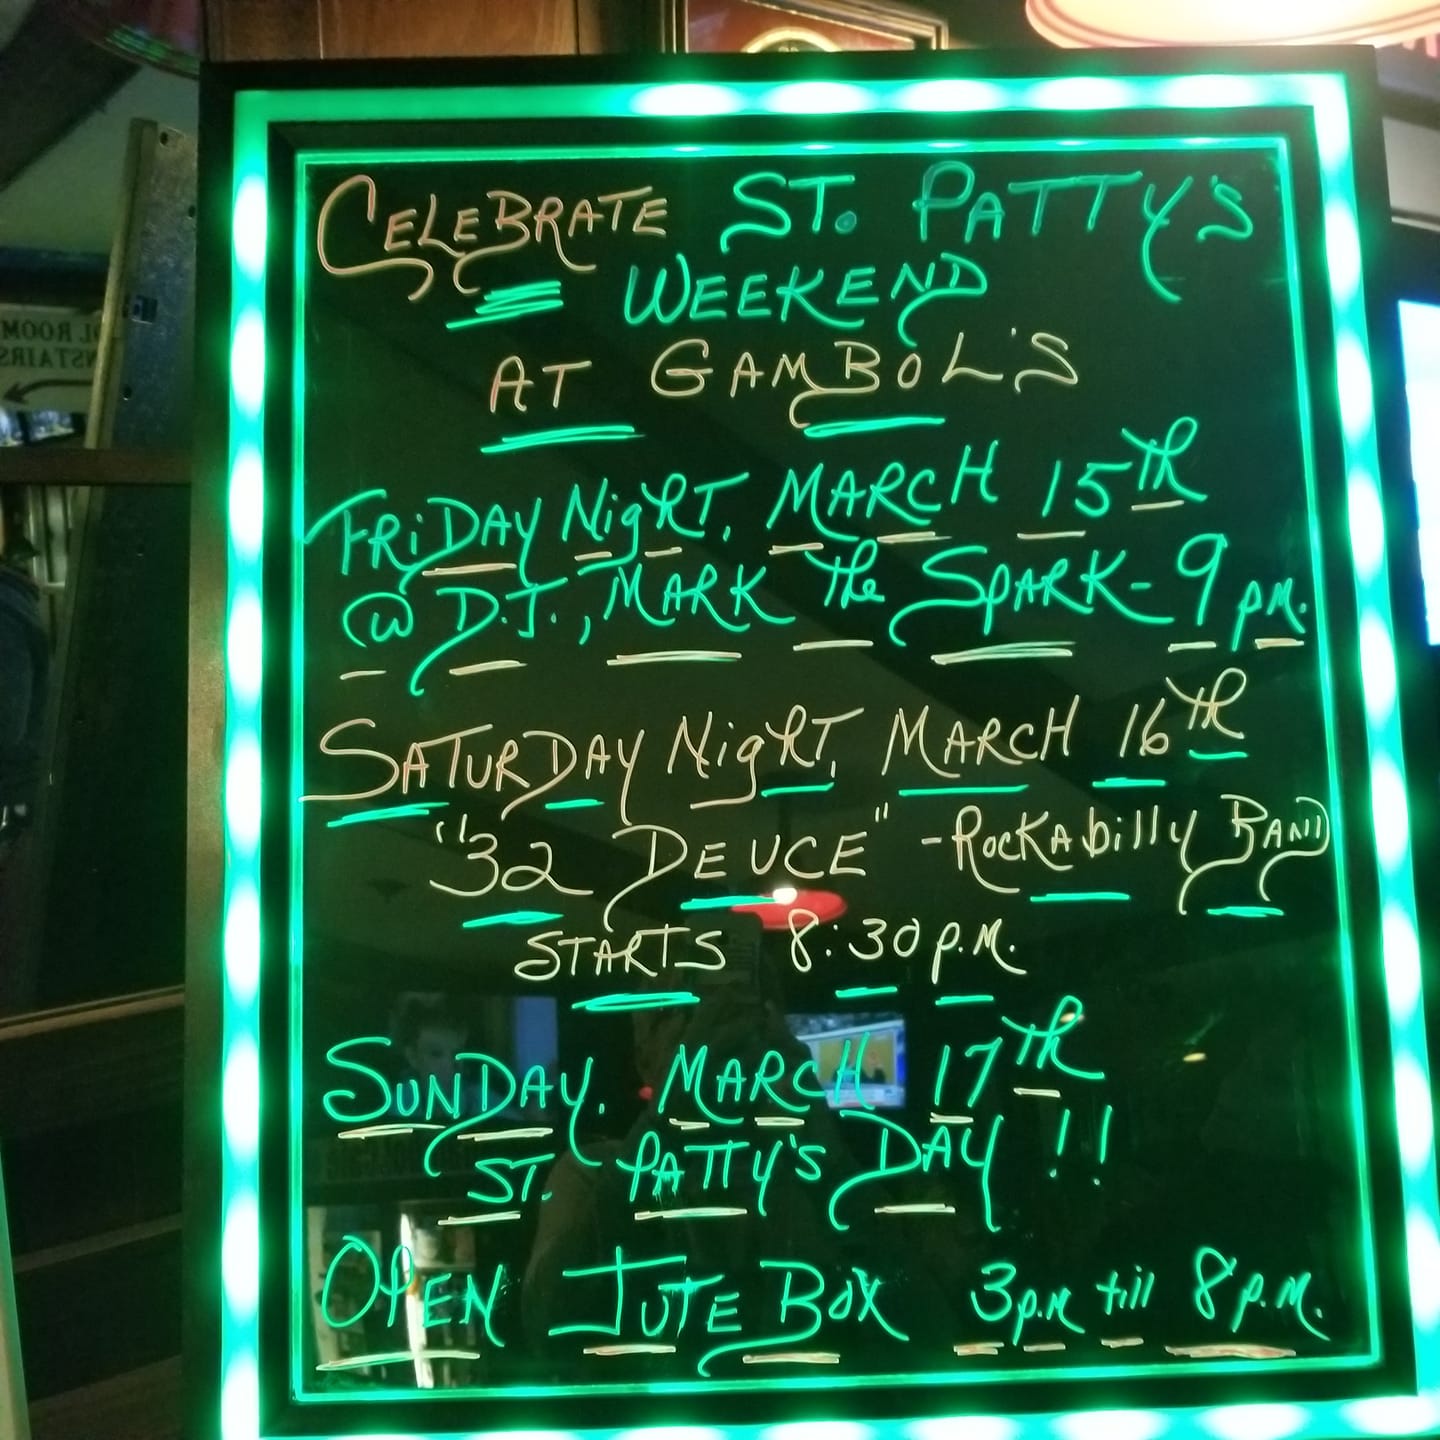 CELEBRATE ST. PATTY'S
WEEKEND
AT GAMBOL'S
FRIDAY NIGHT, MARCH 15TH
@ D.J., MARK THE SPARK - 9 PM.
SATURDAY NIGHT, MARCH 16TH
"32 DEUCE" - ROCKABILLY BAND
STARTS 8:30 P.M.
SUNDAY, MARCH 17TH
ST. PATTY'S DAY !!
OPEN JUTE BOX 3 P.M till 8 P.M.